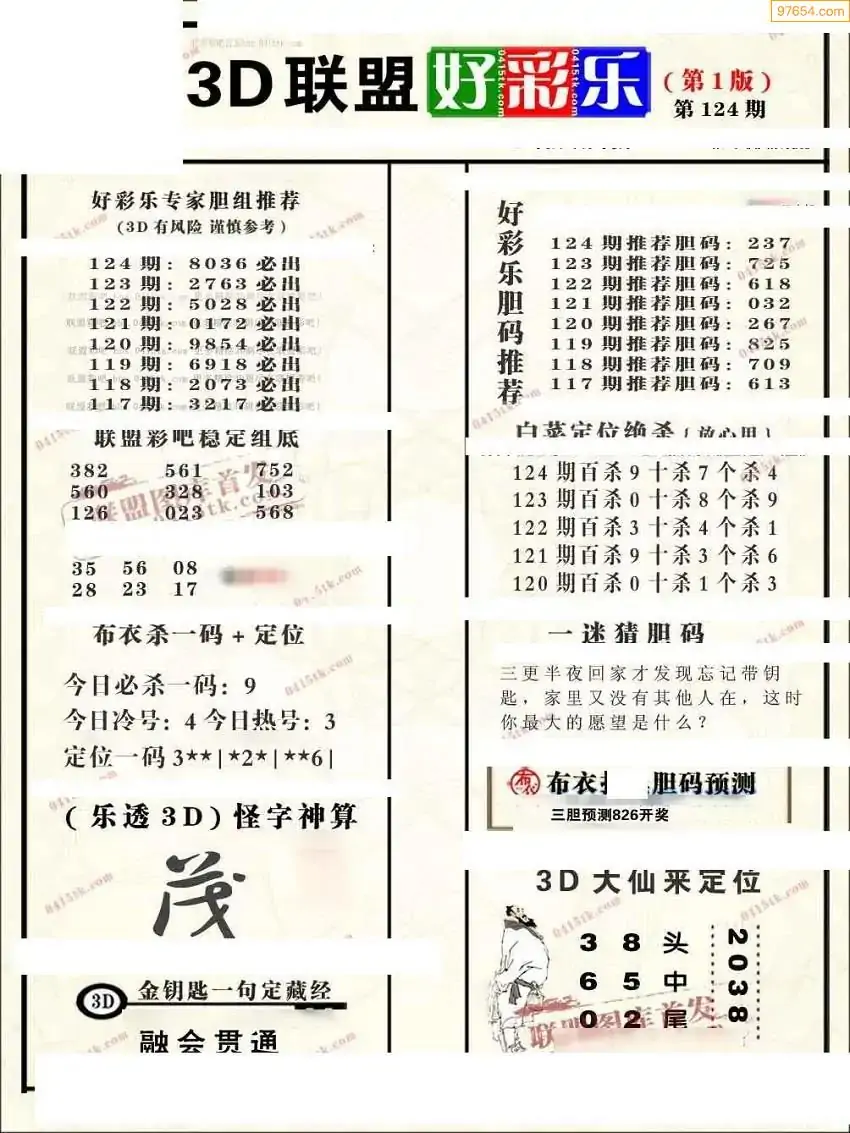 97654.com
3D联盟好彩乐(第1版)
第124期
好彩乐专家胆组推荐
(3D有风险 谨慎参考)
124期: 8036必出
123期: 2763必出
122期: 5028必出
121期: 0172必出
120期: 9854必出
119期: 6918必出
118期: 2073必出
117期: 3217必出
联盟彩吧稳定组底
382 561 752
560 328 103
126 023 568
联盟图库首发
35 56 08
28 23 17
布衣杀一码+定位
今日必杀一码: 9
今日冷号: 4 今日热号: 3
定位一码3**|*2*|**6|
(乐透3D)怪字神算
茂
3D 金钥匙一句定藏经
融会贯通
好彩乐胆码推荐
124期推荐胆码: 237
123期推荐胆码: 725
122期推荐胆码: 618
121期推荐胆码: 032
120期推荐胆码: 267
119期推荐胆码: 825
118期推荐胆码: 709
117期推荐胆码: 613
白菜定位绝杀(放心用)
124期百杀9十杀7个杀4
123期百杀0十杀8个杀9
122期百杀3十杀4个杀1
121期百杀9十杀3个杀6
120期百杀0十杀1个杀3
一迷猜胆码
三更半夜回家才发现忘记带钥
匙，家里又没有其他人在，这时
你最大的愿望是什么？
布衣 胆码预测
三胆预测826开奖
3D大仙来定位
3 8 头
6 5 中
0 2 尾
2038
联盟图库首发
0415tk.com